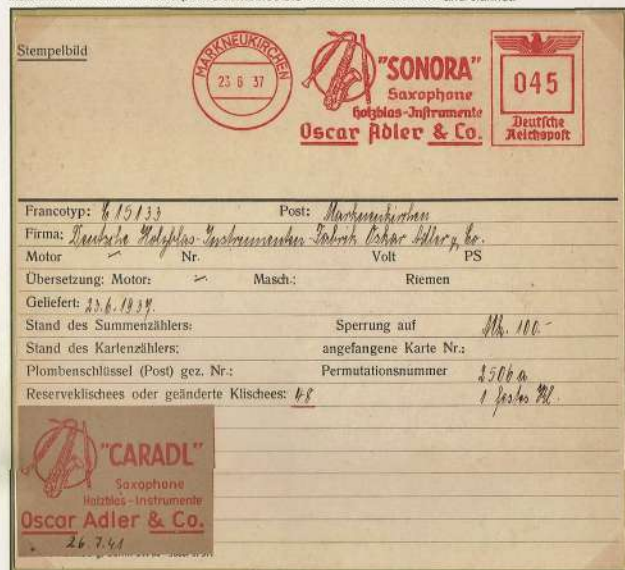 Stempelbild
MARKNEUKIRCHEN
23 6 37
"SONORA"
Saxophone
Holzblas-Instrumente
Oscar Adler & Co.
045
Deutsche
Reichspost
Francotyp: C 15133 Post: Markneukirchen
Firma: Deutsche Holzblas-Instrumenten-Fabrik Oskar Adler & Co.
Motor Nr. Volt PS
Übersetzung: Motor: Masch.: Riemen
Geliefert: 23.6.1937.
Stand des Summenzählers: Sperrung auf 100.-
Stand des Kartenzählers: angefangene Karte Nr.:
Plombenschlüssel (Post) gez. Nr.: Permutationsnummer 2506a
Reserveklischees oder geänderte Klischees: 48 1 festes
"CARADL"
Saxophone
Holzblas-Instrumente
Oscar Adler & Co.
26.7.41